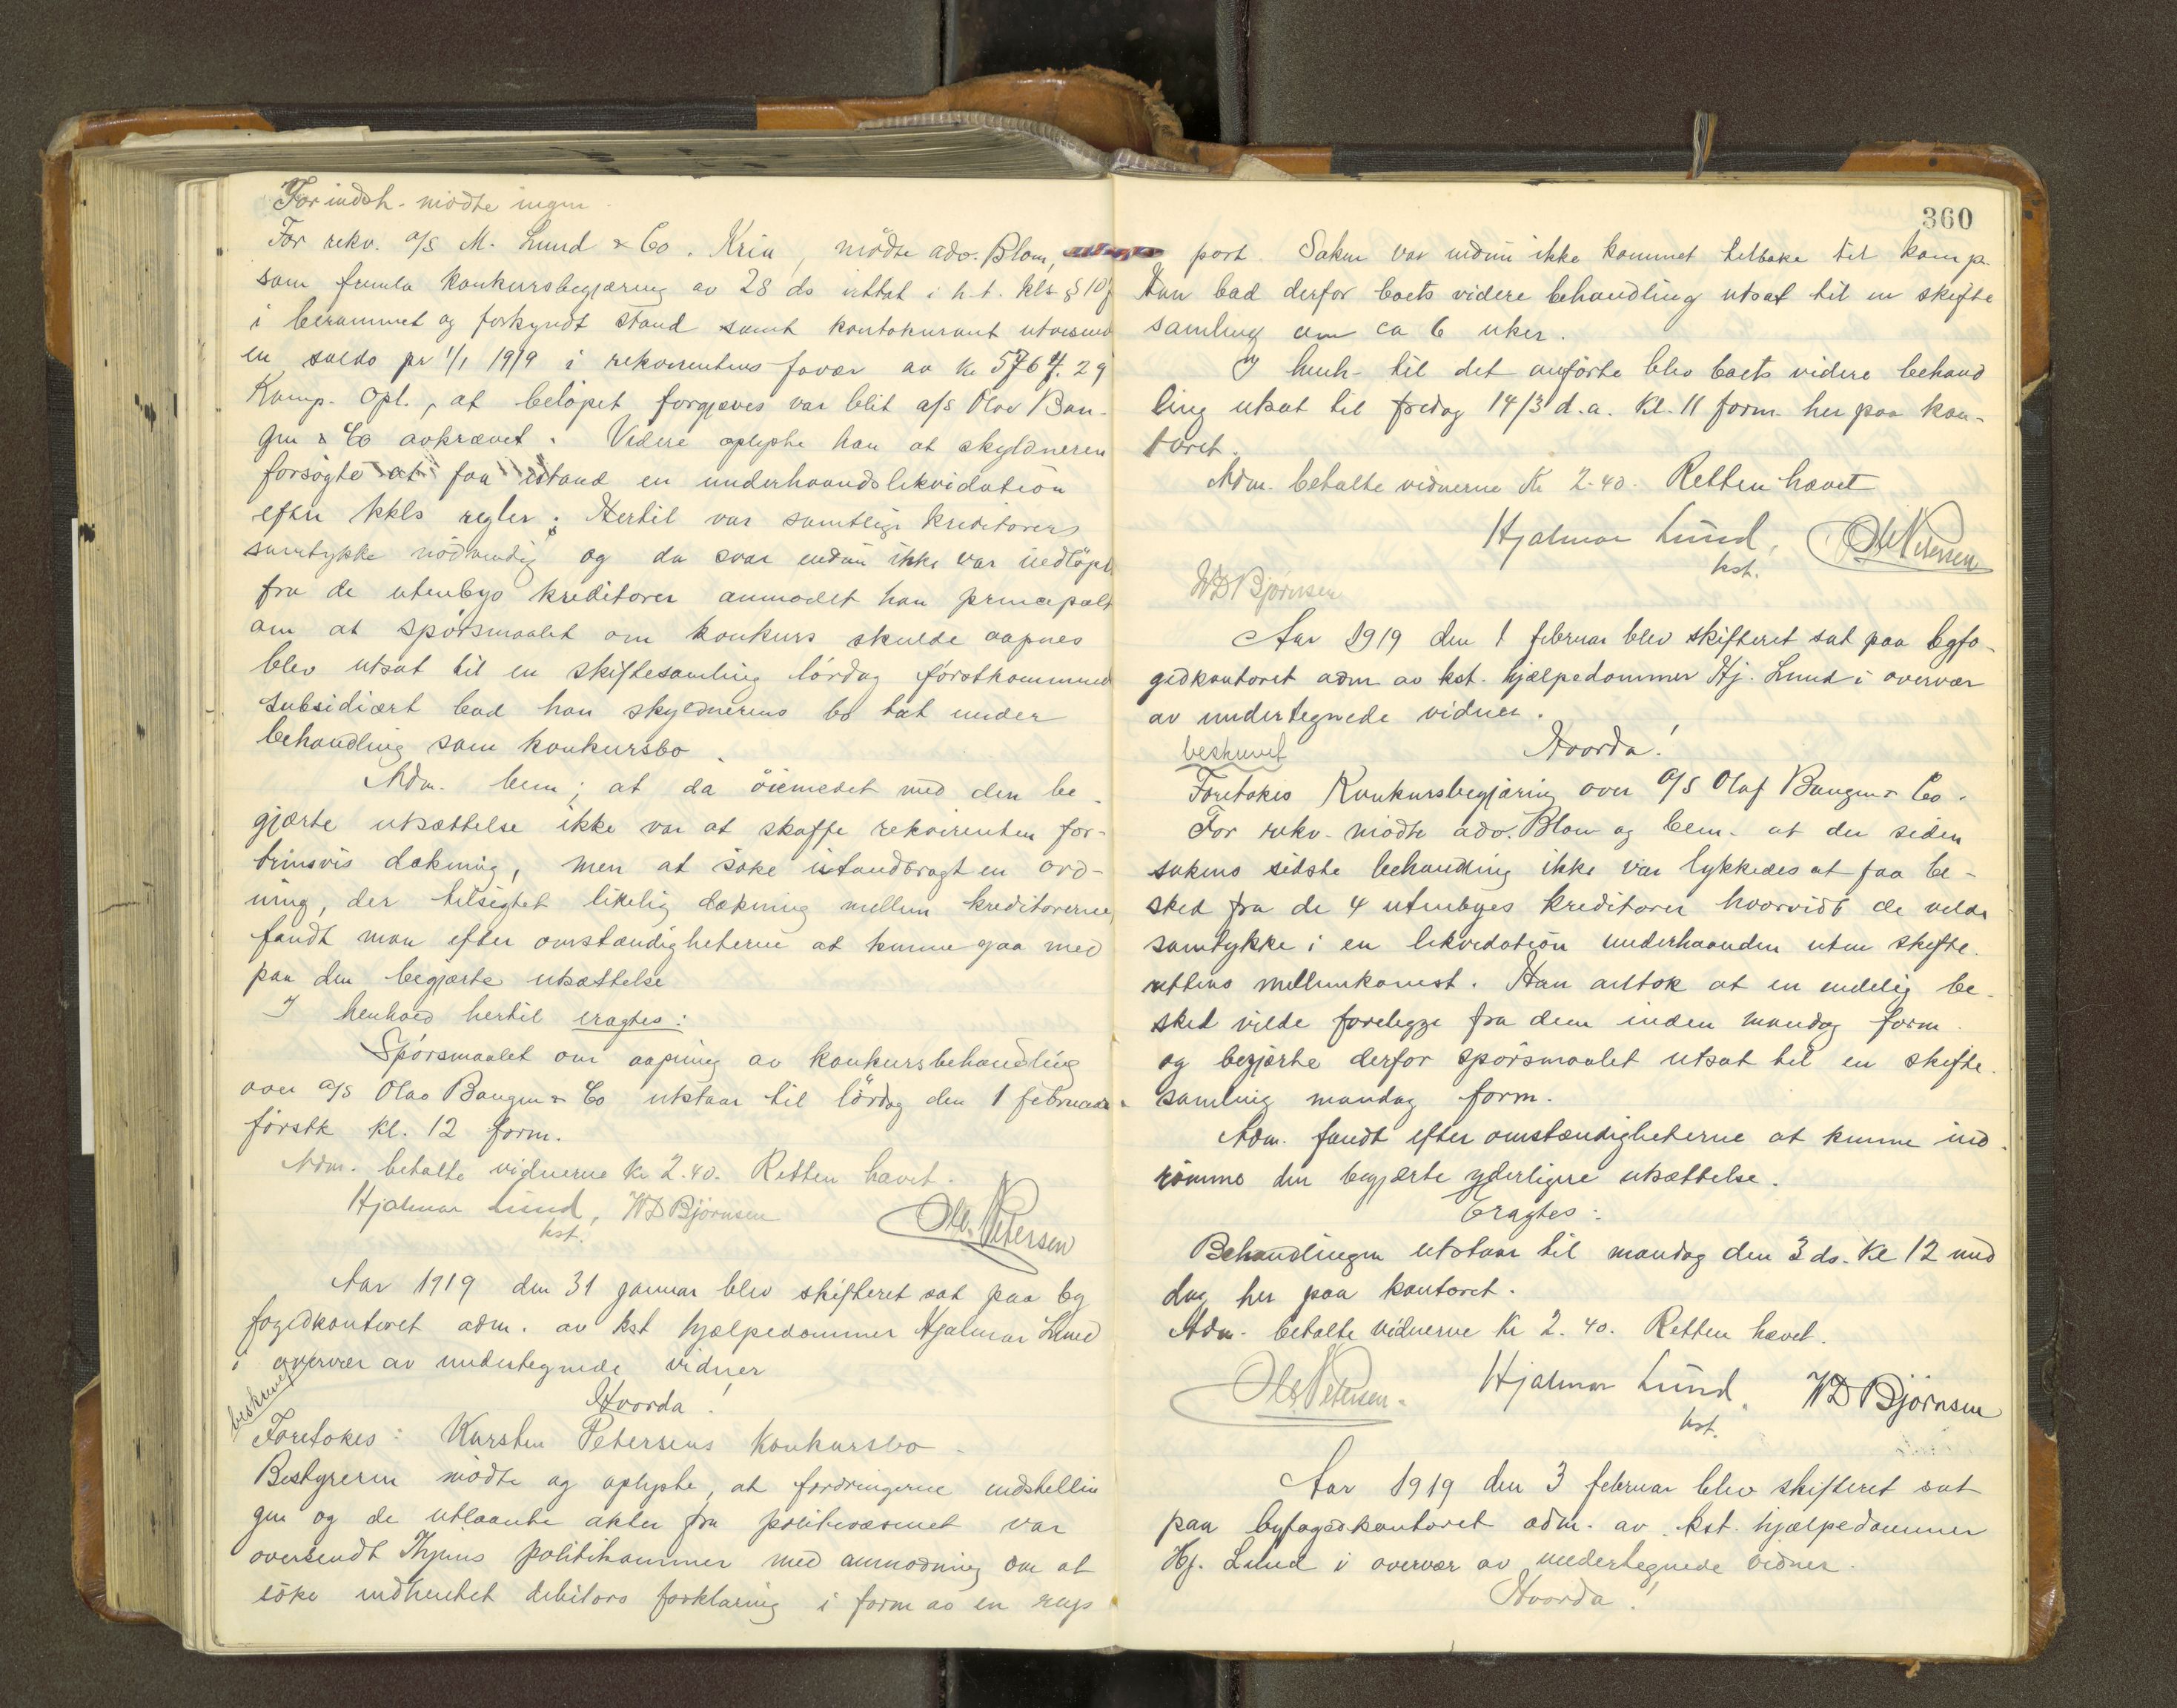 For indst. mødte ingen.
For rekv. a/s M. Lund & Co. Kria, mødte adv. Blom,
som fremla konkursbegjæring av 28 ds irttat i h.t. kls § 10
i berammet og forkyndt stand samt kontokurant utvisende
en saldo pr 1/1 1919 i rekvirentens favør av kr 5767.29
Komp. opl., at beløpet forgjæves var blit a/s Olav Ban-
gen & Co avkrævet. Videre oplyste han at skyldneren
forsøgte at faa istand en underhaandslikvidation
efter kkls regler; Hertil var samtlige kreditorers
samtykke nødvendig og da svar endnu ikke var indløpet
fra de utenbys kreditorer anmodet han principalt
om at spørsmaalet om konkurs skulde aapnes
blev utsat til en skiftesamling lørdag førstkommende
Subsidiært bad han skyldnerens bo tat under
behandling som konkursbo.
Adm. bem; at da øiemedet med den be-
gjærte utsættelse ikke var at skaffe rekvirenten for-
trinsvis dækning, men at søke istandbragt en ord-
ning, der tilsigtet likelig dækning mellem kreditorerne,
fandt man efter omstændigheterne at kunne gaa med
paa den begjærte utsættelse
I henhold hertil eragtes:
Spørsmaalet om aapning av konkursbehandling
over a/s Olav Bangen & Co utstaar til lørdag den 1 februar
førstk kl. 12 form.
Adm. betalte vidnerne kr 2.40. Retten hævet.
Hjalmar Lund, WD Bjørnsen Ole Petersen
kst.
Aar 1919 den 31 januar blev skifteret sat paa by
fogedkontoret adm. av kst hjælpedommer Hjalmar Lund
i overvær av undertegnede vidner
beskrevet
Hvorda!
Foretokes: Karsten Petersens konkursbo.
Bestyreren mødte og oplyste, at fordringerne indstillin
gen og de utlaante akter fra politivæsenet var
oversendt Thjems politikammer med anmodning om at
søke indhentet debitors forklaring i form av en rap
360
port. Saken var endnu ikke kommet tilbake til komp.
Han bad derfor boets videre behandling utsat til en skifte
samling om ca 6 uker.
I henh. til det anførte blev boets videre behand
ling utsat til fredag 14/3 d.a. kl. 11 form. her paa kon-
toret.
Adm. betalte vidnerne Kr 2.40. Retten hævet
Hjalmar Lund, Ole Petersen
kst.
WD Bjørnsen
Aar 1919 den 1 februar blev skifteret sat paa byfo-
gedkontoret adm av kst. hjælpedommer Hj. Lund i overvær
av undertegnede vidner.
beskrevet Hvorda!
Foretokes Konkursbegjæring over a/s Olaf Bangen & Co.
For rekv. mødte adv. Blom og bem. at det siden
sakens sidste behandling ikke var lykkedes at faa be-
sked fra de 4 utenbyes kreditorer hvorvidt de vilde
samtykke i en likvidation underhaanden uten skifte-
rettens mellemkomst. Han antok at en endelig be-
sked vilde foreligge fra dem inden mandag form.
og begjærte derfor spørsmaalet utsat til en skifte-
samling mandag form.
Adm. fandt efter omstændigheterne at kunne ind-
rømme den begjærte yderligere utsættelse.
Eragtes:
Behandlingen utstaar til mandag den 3 ds. kl 12 mid
dag her paa kontoret.
Adm. betalte vidnerne Kr 2.40. Retten hævet.
Ole Petersen. Hjalmar Lund. WD Bjørnsen
kst.
Aar 1919 den 3 februar blev skifteret sat
paa byfogedkontoret adm. av kst. hjælpedommer
Hj. Lund i overvær av undertegnede vidner.
Hvorda!